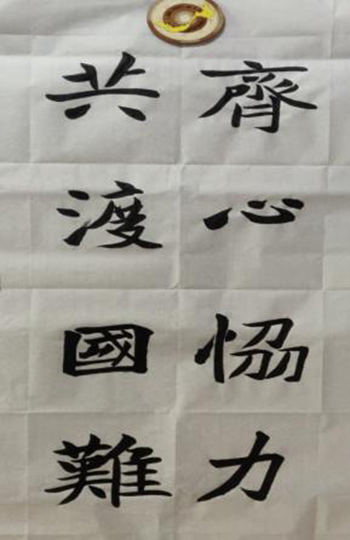 齊心恊力
共渡國難